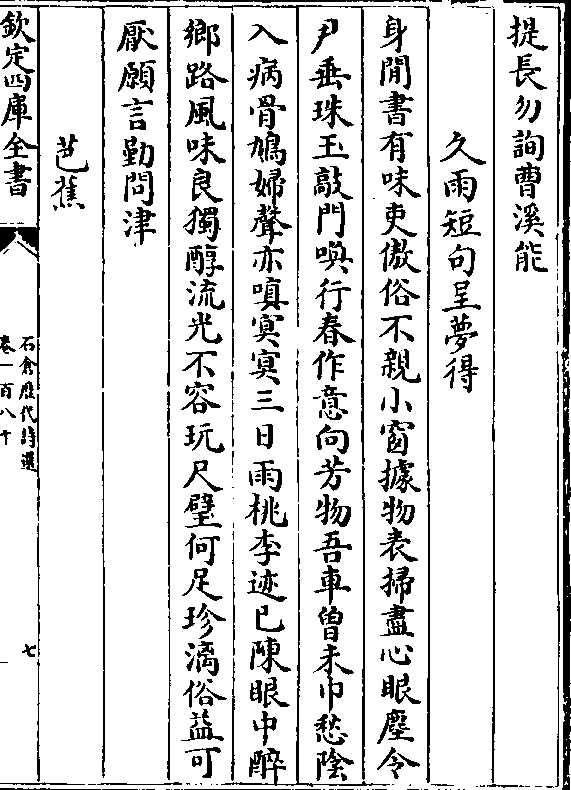 提長勿詢曹溪能
久雨短句呈夢得
身閒書有味吏傲俗不親小窗據物表掃盡心眼塵令
尹垂珠玉敲門喚行春作意向芳物吾車曾未巾愁陰
入病骨鳩婦聲亦嗔寞寞三日雨桃李迹已陳眼中醉
鄉路風味良獨醇流光不容玩尺璧何足珍漓俗益可
厭願言勤問津
芭蕉
欽定四庫全書
石倉歷代詩選
卷一百八十
七